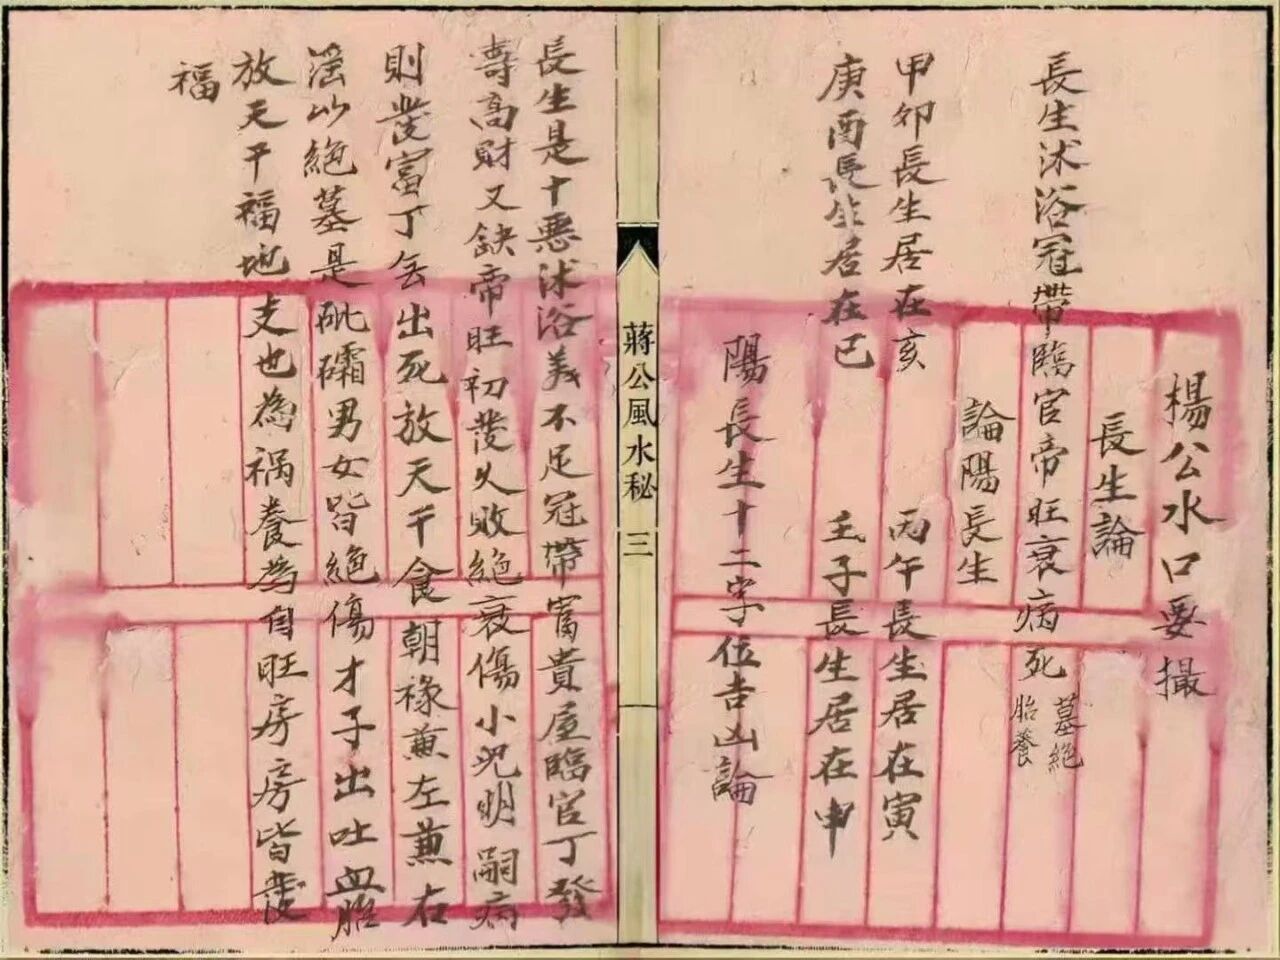 楊公水口要撮
長生論
長生沭浴冠帶臨官帝旺衰病死墓絕胎養
論陽長生
甲卯長生居在亥 丙午長生居在寅
庚酉長生居在巳 壬子長生居在申
陽長生十二字位吉凶論
蔣公風水秘 三
長生是十惡沭浴美不足冠帶富貴屋臨官丁發
壽高財又缺帝旺初發久敗絕衰傷小兒明嗣病
則發富丁 出死放天干食朝祿兼左兼右
滛以絕墓是砒礵男女皆絕傷才子出吐血
放天干福地支也為禍養為自旺房房皆發
福